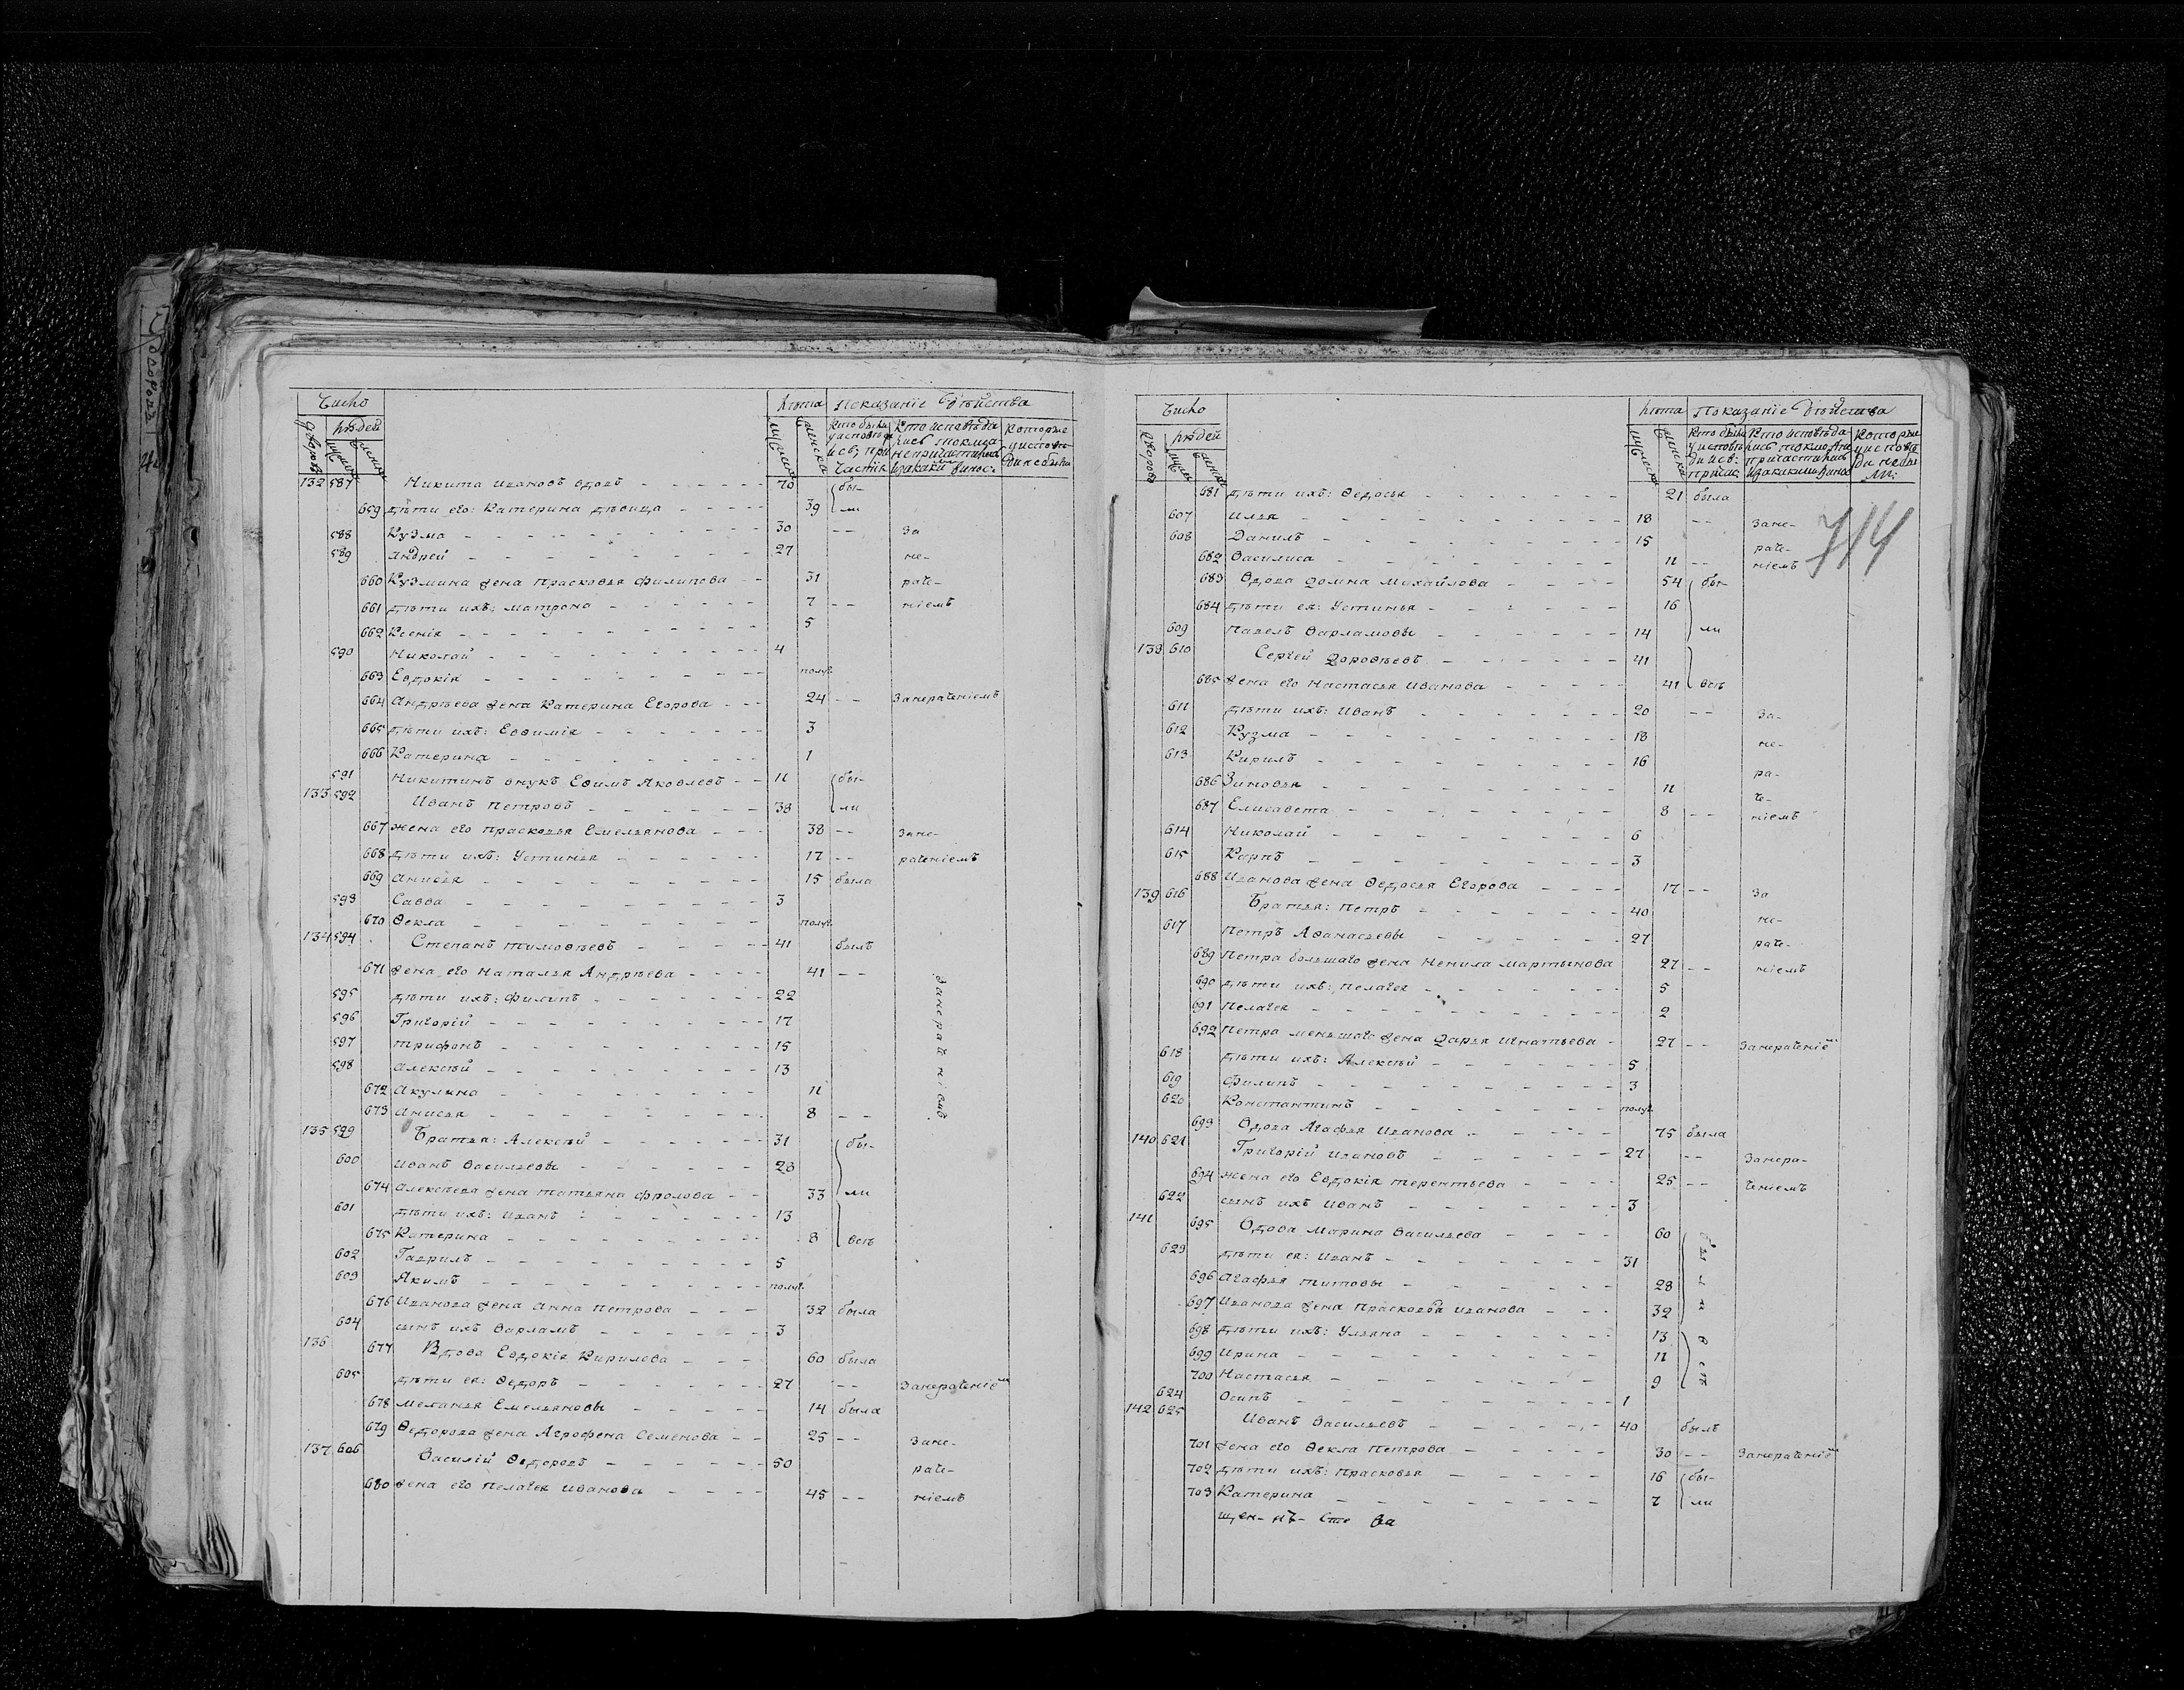 Число
Лѣта Показанїе дѣйства
людей
132 587 Никита Ивановъ вдовъ 70 бы-
659 дѣти его: Катерина дѣвица 39 ли
588 Кузма 30 -- За
589 Андрей 27 не-
660 Кузмина жена Прасковья Филипова 31 раче-
661 дѣти ихъ: Матрона 7 -- нїемъ
662 Ксенїя 5
590 Николай 4
663 Евдокїя полуг.
664 Андрѣева жена Катерина Егорова 24 -- Занераченїемъ
665 дѣти ихъ: Евѳимїя 3
666 Катерина 1
591 Никитинъ внукъ Ефимъ Яковлевъ 11 бы-
133 592 Иванъ Петровъ 38 ли
667 жена его Прасковья Емельянова 38 -- Зане-
668 дѣти ихъ: Устинья 17 -- раченїемъ
669 Анисья 15 была
593 Савва 3
670 Ѳекла полуг.
134 594 Степанъ Тимоѳѣевъ 41 былъ
671 жена его Наталья Андрѣева 41 -- Занераченїемъ
595 дѣти ихъ: Филипъ 22
596 Григорїй 17
597 Трифонъ 15
598 Алексѣй 13
672 Акулина 11
673 Анисья 8 --
135 599 Братья: Алексѣй 31 бы-
600 Иванъ Васильевы 28
674 Алексѣева жена Татьяна Фролова 33 ли
601 дѣти ихъ: Иванъ 13
675 Катерина 8 всѣ
602 Гаврилъ 5
603 Якимъ полуг.
676 Иванова жена Анна Петрова 32 была
604 сынъ ихъ Варламъ 3
136 677 Вдова Евдокїя Кирилева 60 была
605 дѣти ея: Ѳедоръ 27 -- Занераченїемъ
678 Меланья Емельяновы 14 была
679 Ѳедорова жена Агрофена Семенова 25 -- Зане-
137 606 Василїй Ѳедоровъ 50 раче-
680 жена его Пелагея Иванова 45 -- нїемъ
Число
Лѣта Показанїе дѣйства
людей
714
681 дѣти ихъ: Ѳедосья 21 была
607 Илья 18 -- Зане-
608 Данилъ 15 раче-
682 Василиса 11 -- нїемъ
683 Вдова Домна Михайлова 54 бы-
684 дѣти ея: Устинья 16
609 Павелъ Варламовы 14 ли
138 610 Сергей Дороѳѣевъ 41
685 жена его Настасья Иванова 41 всѣ
611 дѣти ихъ: Иванъ 20 -- За-
612 Кузма 18 не-
613 Кирилъ 16 ра-
686 Зиновья 11 че-
687 Елисавета 8 -- нїемъ
614 Николай 6
615 Карпъ 3
688 Иванова жена Ѳедосья Егорова 17 -- За
139 616 Братья: Петръ 40 не-
617 Петръ Аѳанасьевы 27 раче-
689 Петра большаго жена Ненила Мартынова 27 -- нїемъ
690 дѣти ихъ: Пелагея 5
691 Пелагея 2
692 Петра меньшаго жена Дарья Игнатьева 27 -- Занераченїемъ
618 дѣти ихъ: Алексѣй 5
619 Филипъ 3
620 Константинъ полуг.
693 Вдова Агафья Иванова 75 была
140 621 Григорїй Ивановъ 27 -- Занера-
694 жена его Евдокїя Терентьева 25 -- ченїемъ
622 сынъ ихъ Иванъ 3
141 695 Вдова Марина Васильева 60 были
623 дѣти ея: Иванъ 31
696 Агафья Титовы 28
697 Иванова жена Прасковья Иванова 32
698 дѣти ихъ: Ульяна 13 всѣ
699 Ирина 11
700 Настасья 9
624 Осипъ 1
142 625 Иванъ Васильевъ 40 былъ
701 жена его Ѳекла Петрова 30 -- Занераченїемъ
702 дѣти ихъ: Прасковья 16 бы-
703 Катерина 7 ли